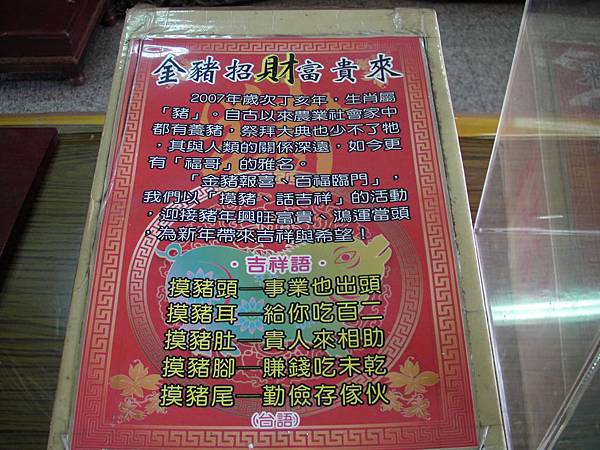 金豬招財富貴來
2007年歲次丁亥年，生肖屬
「豬」。自古以來農業社會家中
都有養豬，祭拜大典也少不了牠
，其與人類的關係深遠，如今更
有「福哥」的雅名。
「金豬報喜、百福臨門」，
我們以「摸豬、話吉祥」的活動
，迎接豬年興旺富貴、鴻運當頭
，為新年帶來吉祥與希望！
·吉祥語·
摸豬頭—事業也出頭
摸豬耳—給你吃百二
摸豬肚—貴人來相助
摸豬腳—賺錢吃未乾
摸豬尾—勤儉存傢伙
(台語)